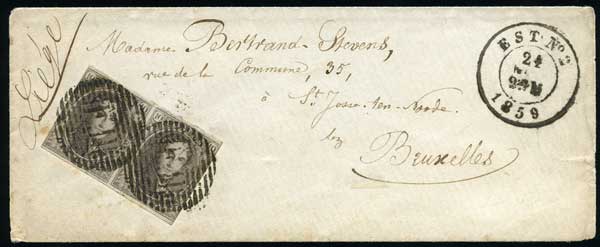 Liége
Madame Bertrand-Stevens,
rue de la Commune, 35,
à St Josse-ten-Noode,
lez
Bruxelles
EST No 2
24
1859